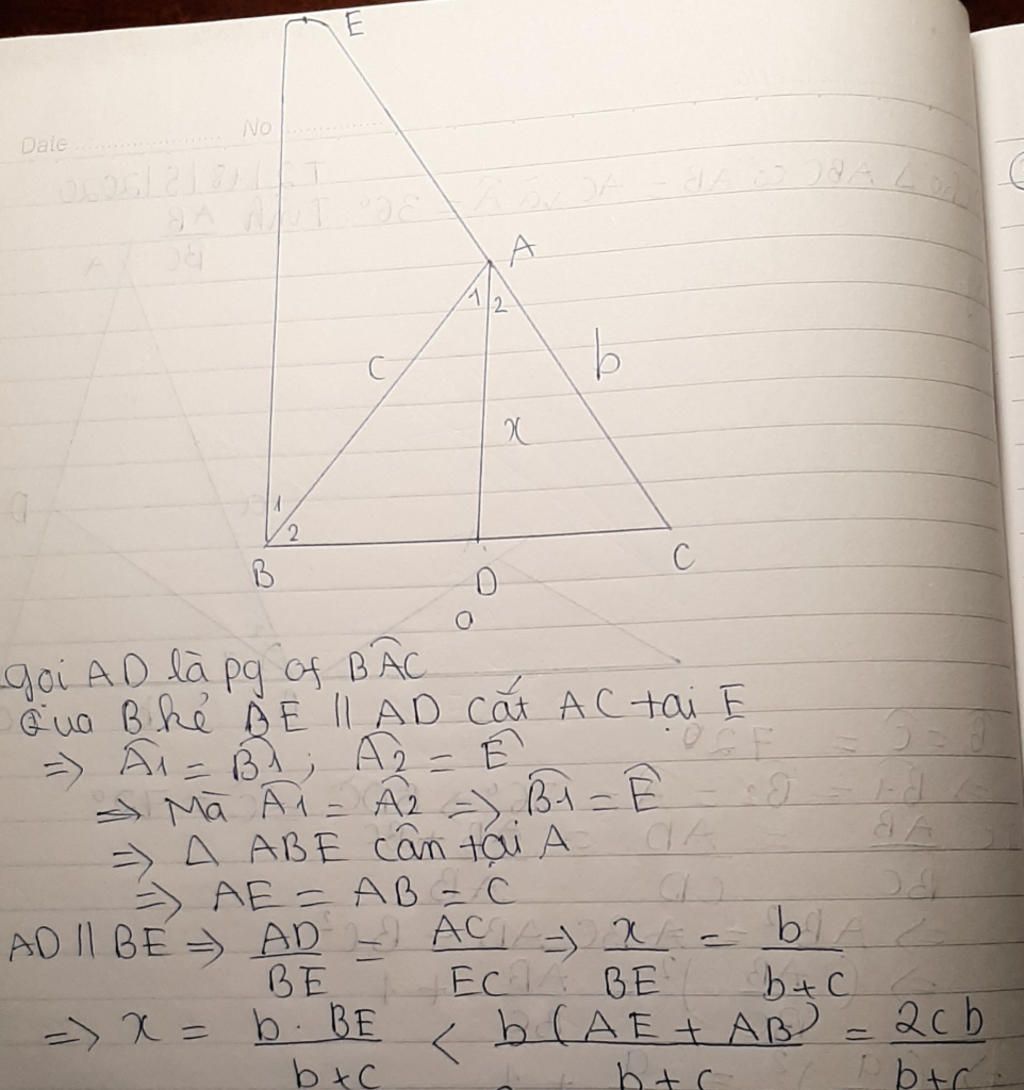 Date No
E
A
1 2
c
b
x
1
2
B
D
C
a
gọi AD là pg of BÂC
Qua B kẻ BE // AD cắt AC tại E
=> Â1 = B̂1 ; Â2 = Ê
=> Mà Â1 = Â2 => B̂1 = Ê
=> Δ ABE cân tại A
=> AE = AB = c
AD // BE => AD/BE = AC/EC => x/BE = b/(b+c)
=> x = b . BE/(b+c) < b(AE + AB)/(b+c) = 2cb/(b+c)